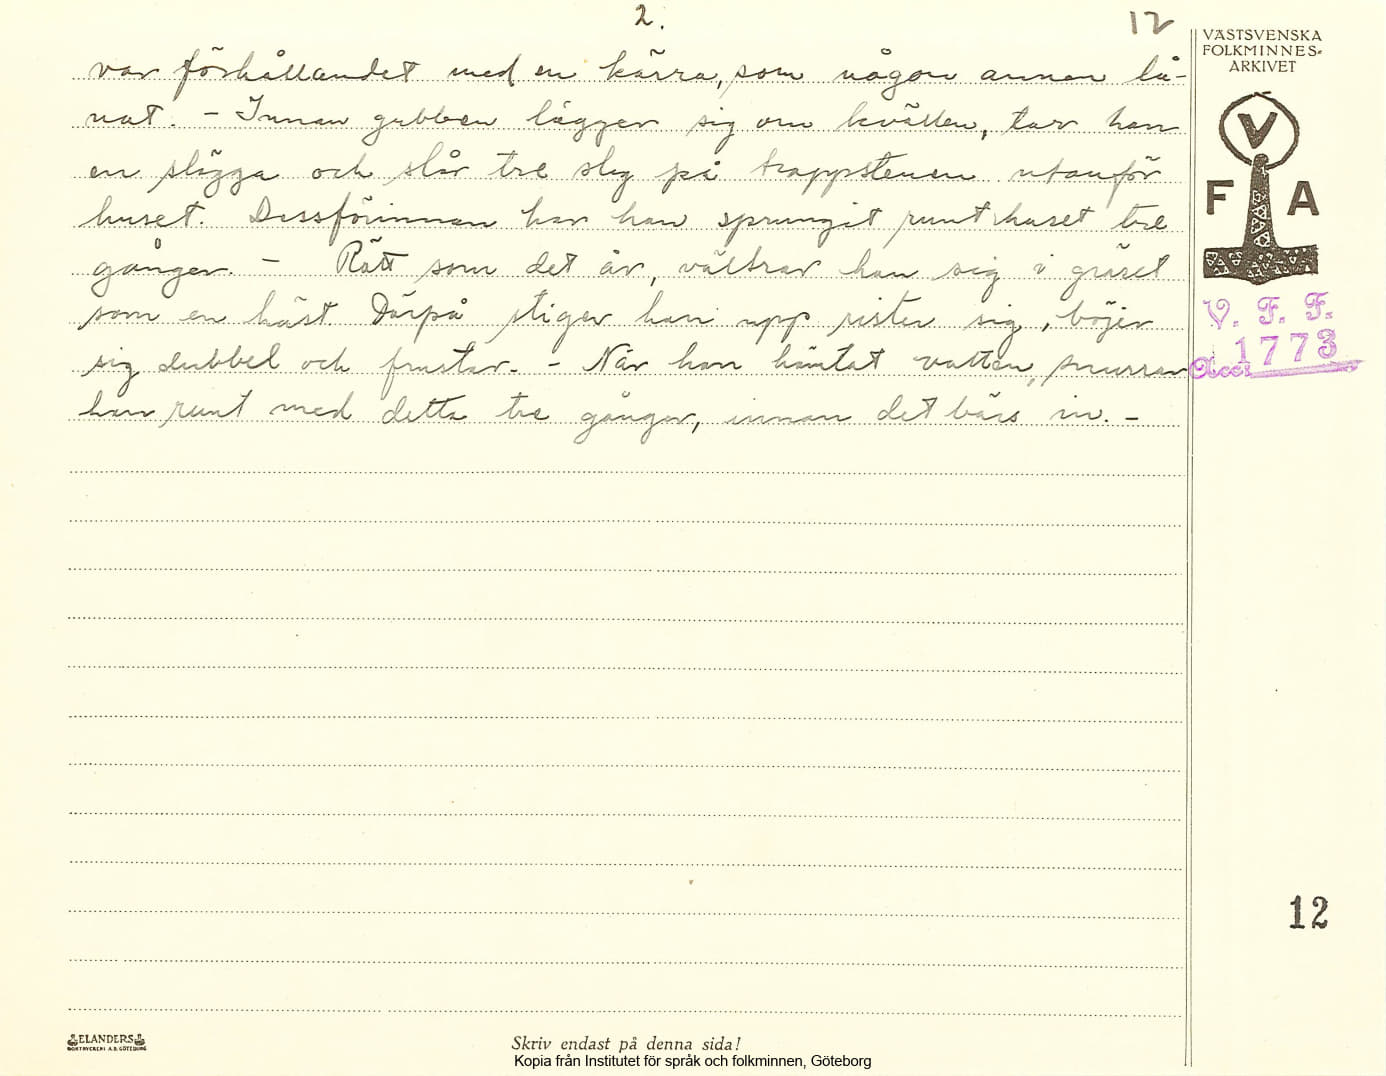 2.
12
var förhållandet med en kärra, som någon annan lå-
nat. - Innan gubben lägger sig om kvällen, tar han
en slägga och slår tre slag på trappstenen utanför
huset. Dessförinnan har han sprungit runt huset tre
gånger. - Rätt som det är, vältrar han sig i gräset
som en häst. Därpå stiger han upp rister sig, böjer
sig dubbel och frustar. - När han hämtat vatten, snurrar
han runt med detta tre gånger, innan det bärs in. -
VÄSTSVENSKA
FOLKMINNES-
ARKIVET
V
F A
V. F. F.
Acc: 1773
12
ELANDERS
BOKTRYCKERI A.B. GÖTEBORG
Skriv endast på denna sida!
Kopia från Institutet för språk och folkminnen, Göteborg